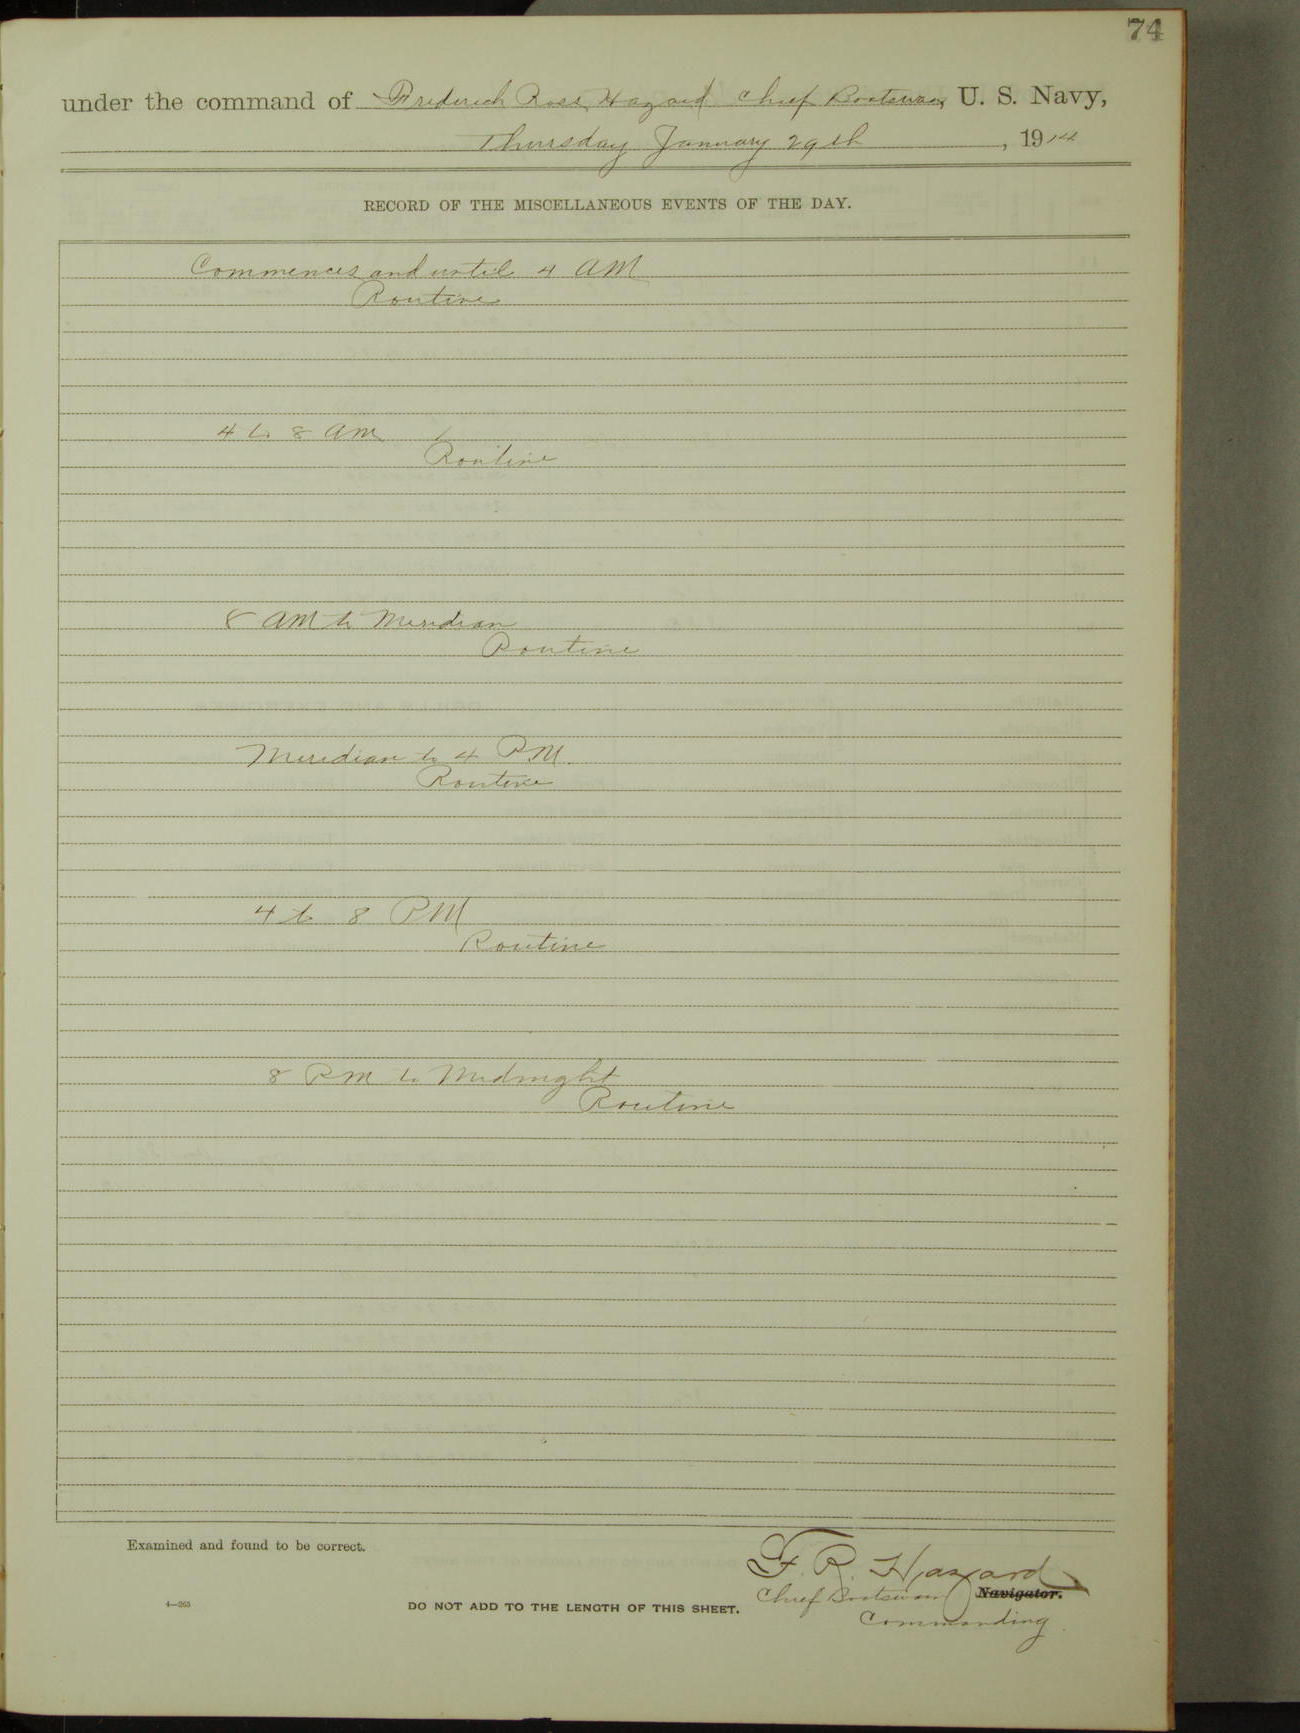 74
under the command of Frederick Ross Hazard Chief Boatswain, U. S. Navy,
Thursday January 29th, 1914
RECORD OF THE MISCELLANEOUS EVENTS OF THE DAY.
Commences and until 4 AM
Routine
4 to 8 am
Routine
8 AM to Meridian
Routine
Meridian to 4 P.M.
Routine
4 to 8 PM
Routine
8 PM to Midnight
Routine
Examined and found to be correct.
F. R. Hazard
Chief Boatswain Navigator.
Commanding
4—263
DO NOT ADD TO THE LENGTH OF THIS SHEET.